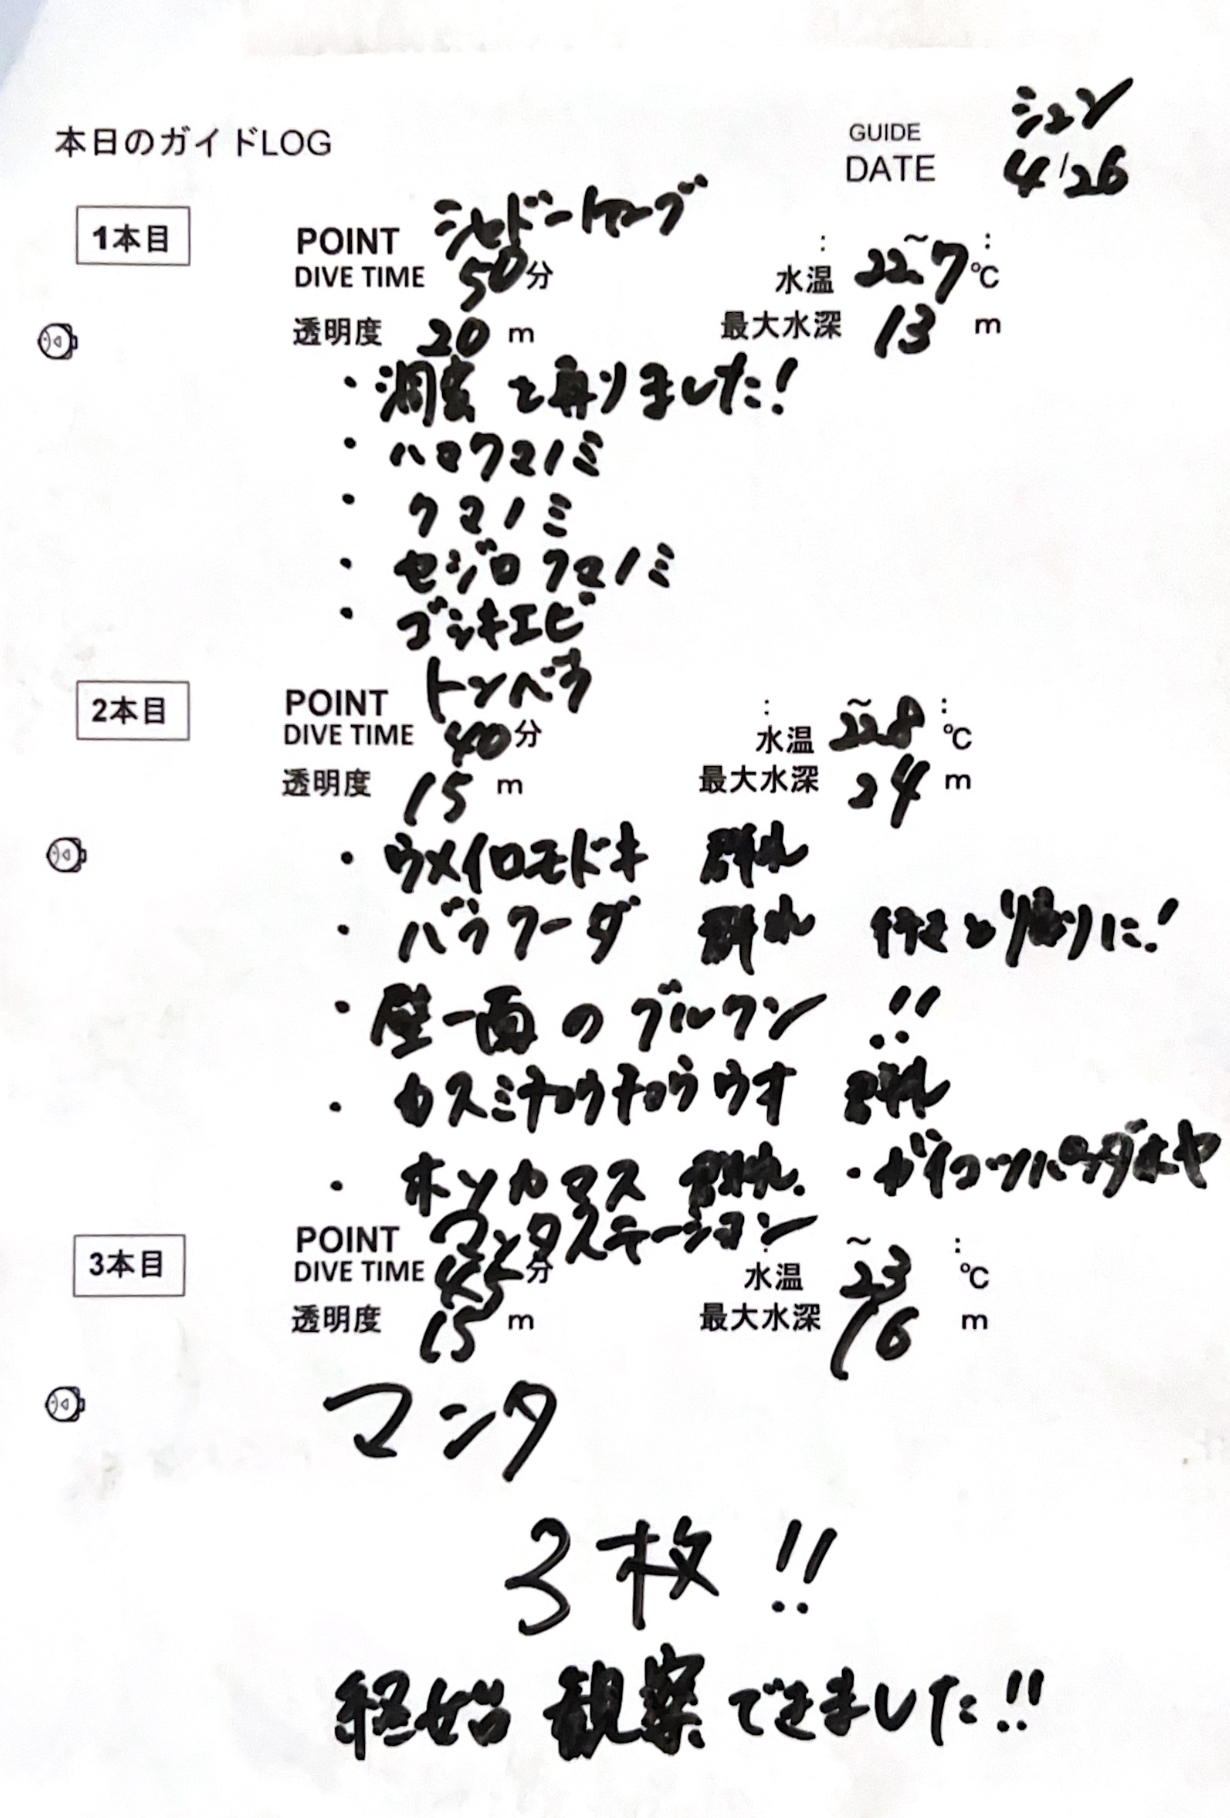 本日のガイドLOG
GUIDE シュン
DATE 4/26
1本目
POINT シャドーケーブ ~ : :
DIVE TIME 50分 水温 22.7℃
透明度 20 m 最大水深 13 m
・洞窟 を 乗りました!
・ハマクマノミ
・クマノミ
・セジロクマノミ
・ゴシキエビ
2本目
POINT トンベラ : ~ :
DIVE TIME 40分 水温 22.8℃
透明度 15 m 最大水深 24 m
・ウメイロモドキ 群れ
・バラクーダ 群れ 行きと帰りに!
・壁一面のグルクン !!
・カスミチョウチョウウオ 群れ
・ホソカマス 群れ. ・ガイコツパンダホヤ
3本目
POINT マンタステーション : ~ :
DIVE TIME 45分 水温 23 ℃
透明度 15 m 最大水深 16 m
マンタ
3枚!!
終始 観察できました!!